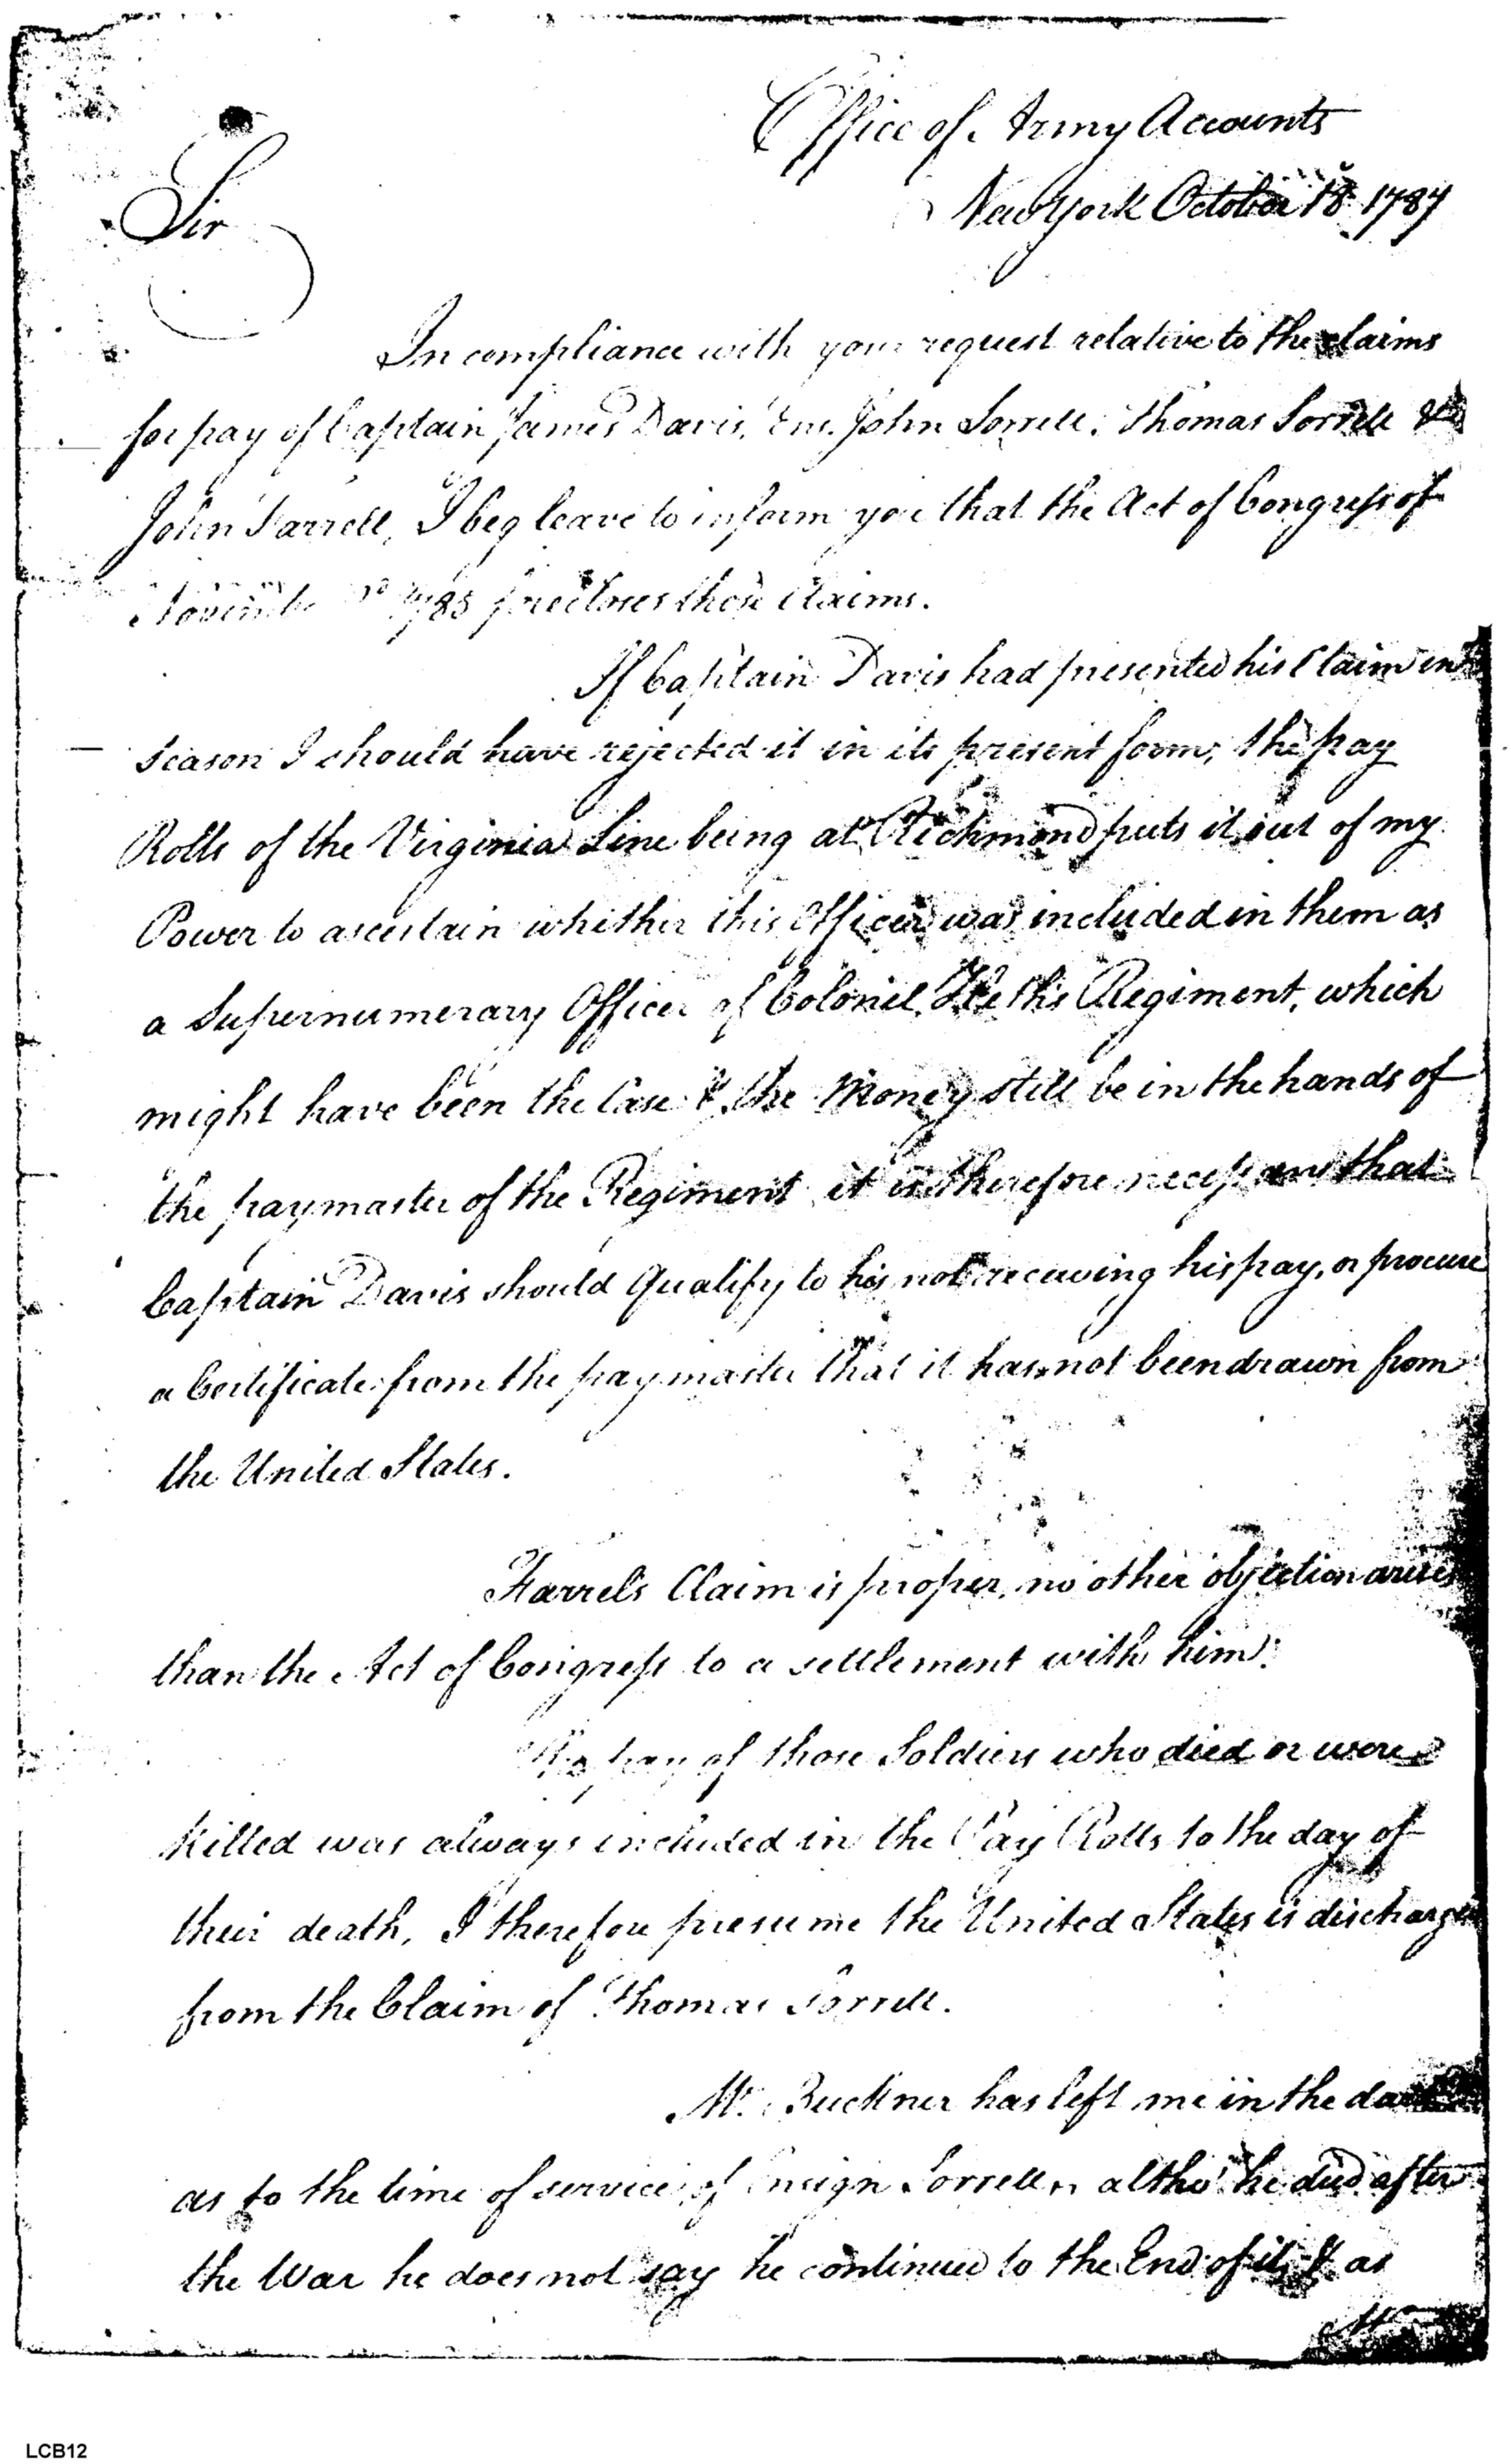 Office of Army Accounts
New York October 18 1787
Sir
In compliance with your request relative to the claims
for pay of Captain James Davis, Ens. John Sorrell, Thomas Sorrell &
John Farrell, I beg leave to inform you that the Act of Congress of
November 1785 precludes those Claims.
If Captain Davis had presented his Claim in
season I should have rejected it in its present form, the pay
Rolls of the Virginia Line being at Richmond puts it out of my
Power to ascertain whether this Officer was included in them as
a Supernumerary Officer of Colonel Heth's Regiment, which
might have been the Case & the Money still be in the hands of
the paymaster of the Regiment it is therefore necessary that
Captain Davis should Qualify to his not receiving his pay, or procure
a Certificate from the paymaster that it has not been drawn from
the United States.
Farrel's Claim is proper, no other objection arises
than the Act of Congress to a settlement with him.
The pay of those Soldiers who died or were
killed was always included in the Pay Rolls to the day of
their death, I therefore presume the United States is discharged
from the Claim of Thomas Sorrell.
Mr. Buckner has left me in the dark
as to the time of service of Ensign Sorrell, altho' he died after
the War he does not say he continued to the End of it, & as
LCB12